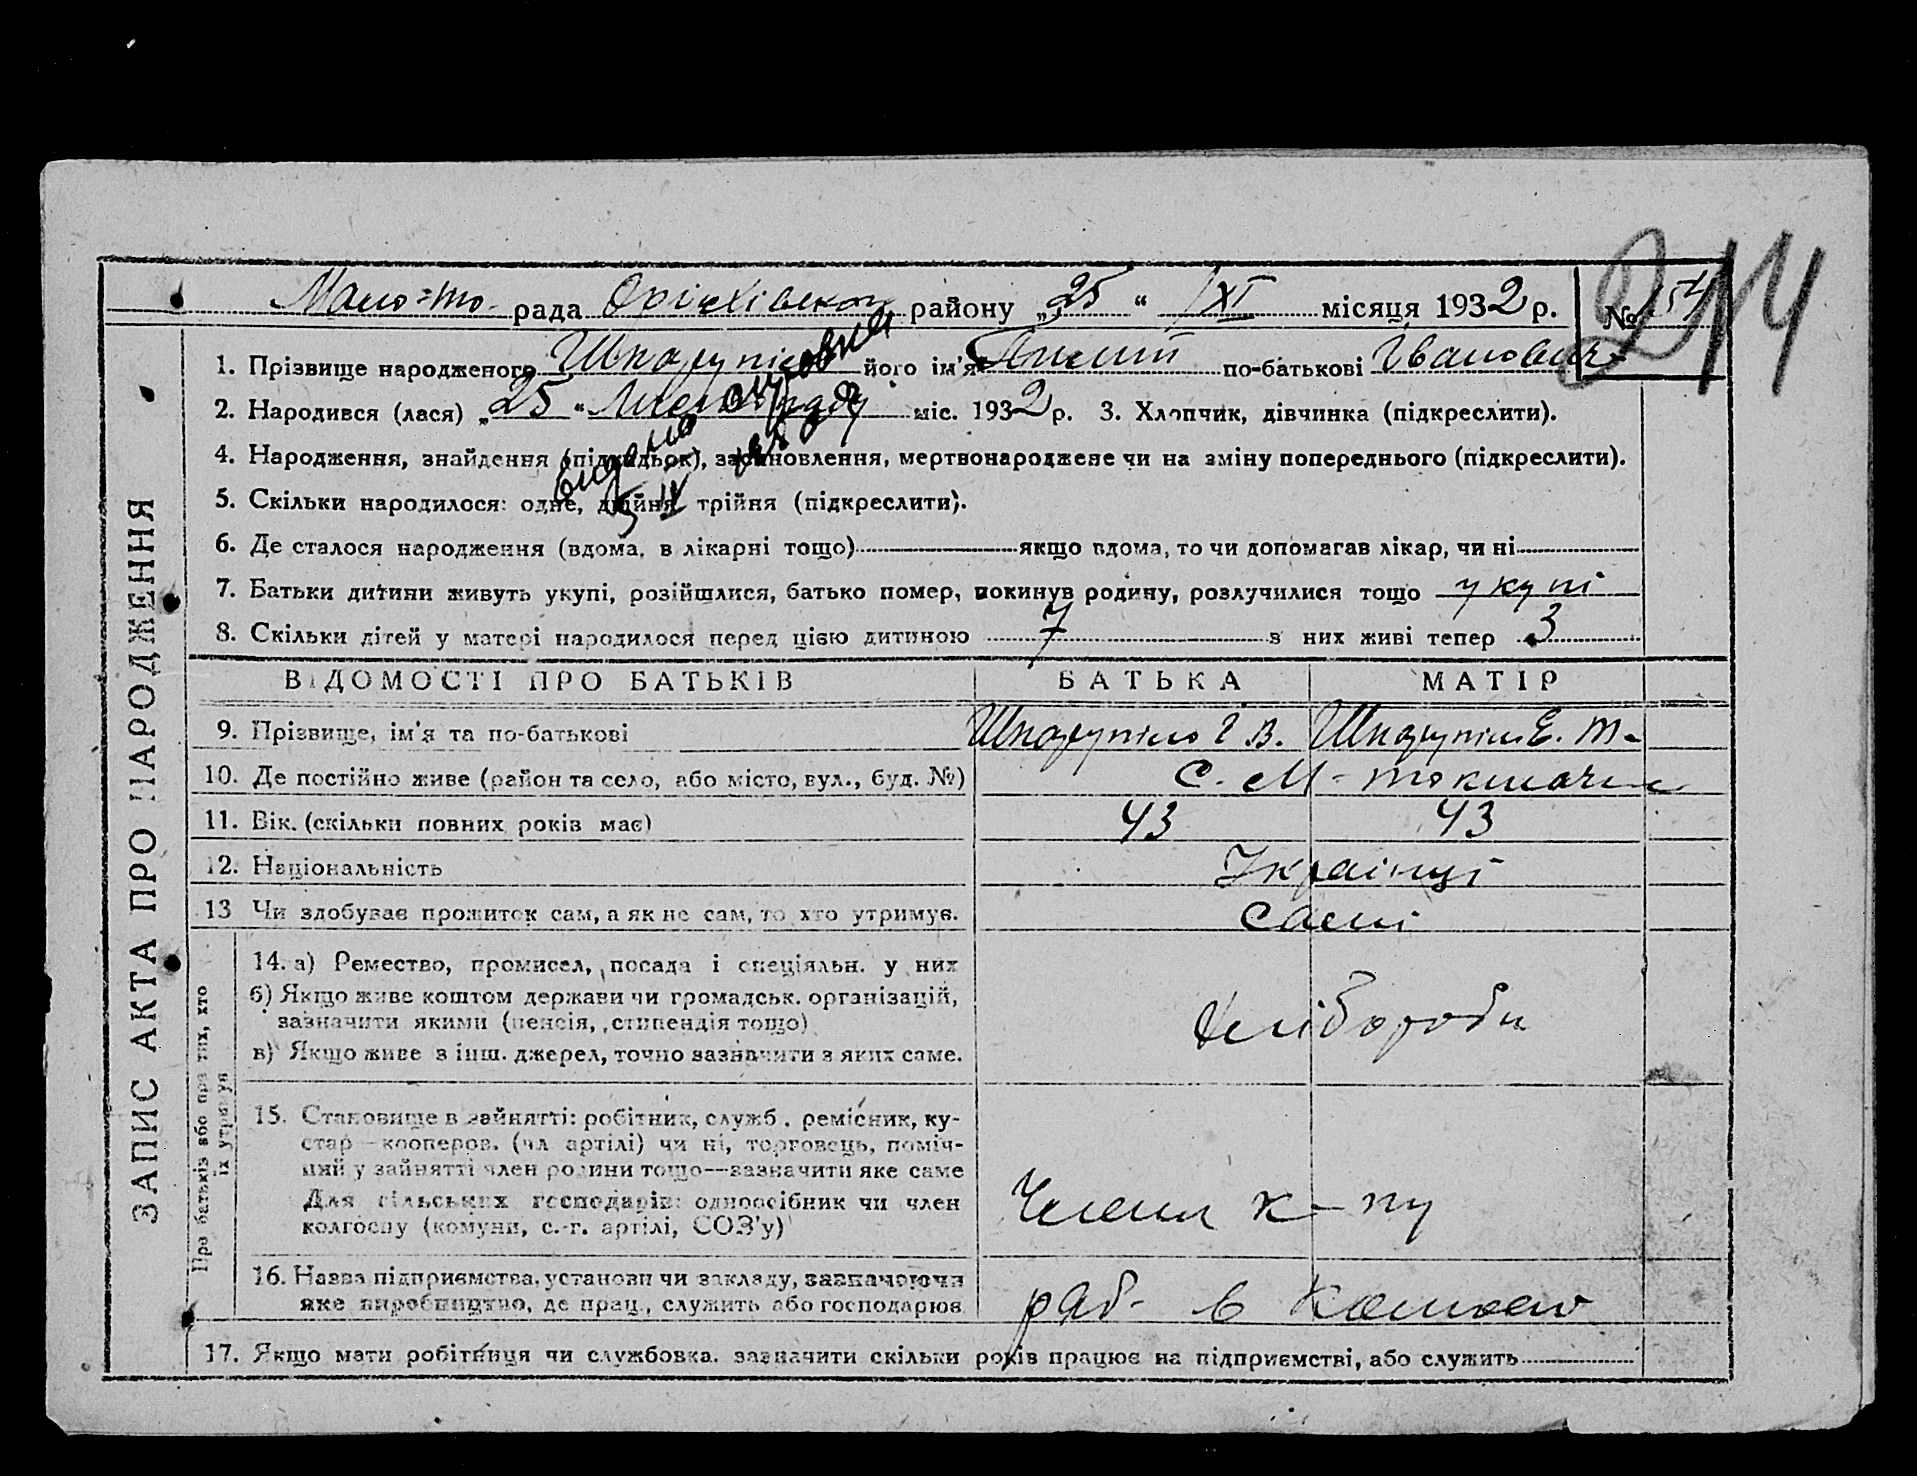 214
Мало-то- рада Оріхівского району „25“ XI місяця 1932 р. № 54
1. Прізвище народженого його ім'я по-батькові Іванович
2. Народився (лася) „25“ Листопаду міс. 1932 р. 3. Хлопчик, дівчинка (підкреслити).
4. Народження, знайдення (підкидьок), засиновлення, мертвонароджене чи на зміну попереднього (підкреслити).
видано
5 IV
5. Скільки народилося: одне, двійня, трійня (підкреслити).
6. Де сталося народження (вдома, в лікарні тощо) якщо вдома, то чи допомагав лікар, чи ні
7. Батьки дитини живуть укупі, розійшлися, батько помер, покинув родину, розлучилися тощо укупі
8. Скільки дітей у матері народилося перед цією дитиною 7 з них живі тепер 3
ЗАПИС АКТА ПРО НАРОДЖЕННЯ
ВІДОМОСТІ ПРО БАТЬКІВ БАТЬКА МАТІР
9. Прізвище, ім'я та по-батькові І. В. Е. Т-
10. Де постійно живе (район та село, або місто, вул., буд. №) С. М-Токмачка
11. Вік. (скільки повних років має) 43 43
12. Національність Українці
13 Чи здобуває прожиток сам, а як не сам, то хто утримує. Самі
Про батьків або про тих, хто
їх утримує
14. а) Ремество, промисел, посада і спеціяльн. у них
б) Якщо живе коштом держави чи громадськ. організацій,
зазначити якими (пенсія, стипендія тощо)
в) Якщо живе з інш. джерел, точно зазначити з яких саме.
Хлібороби
15. Становище в зайнятті: робітник, служб., ремісник, ку-
стар—кооперов. (чл артілі) чи ні, торговець, поміч-
ний у зайнятті член родини тощо—зазначити яке саме
Для сільських господарів: одноосібник чи член
колгоспу (комуни, с.-г. артілі, СОЗ'у)
Члени к-пу
16. Назва підприємства, установи чи закладу, зазначаючи
яке виробництво, де прац., служить або господарює
раб. в
17. Якщо мати робітниця чи службовка, зазначити скільки років працює на підприємстві, або служить